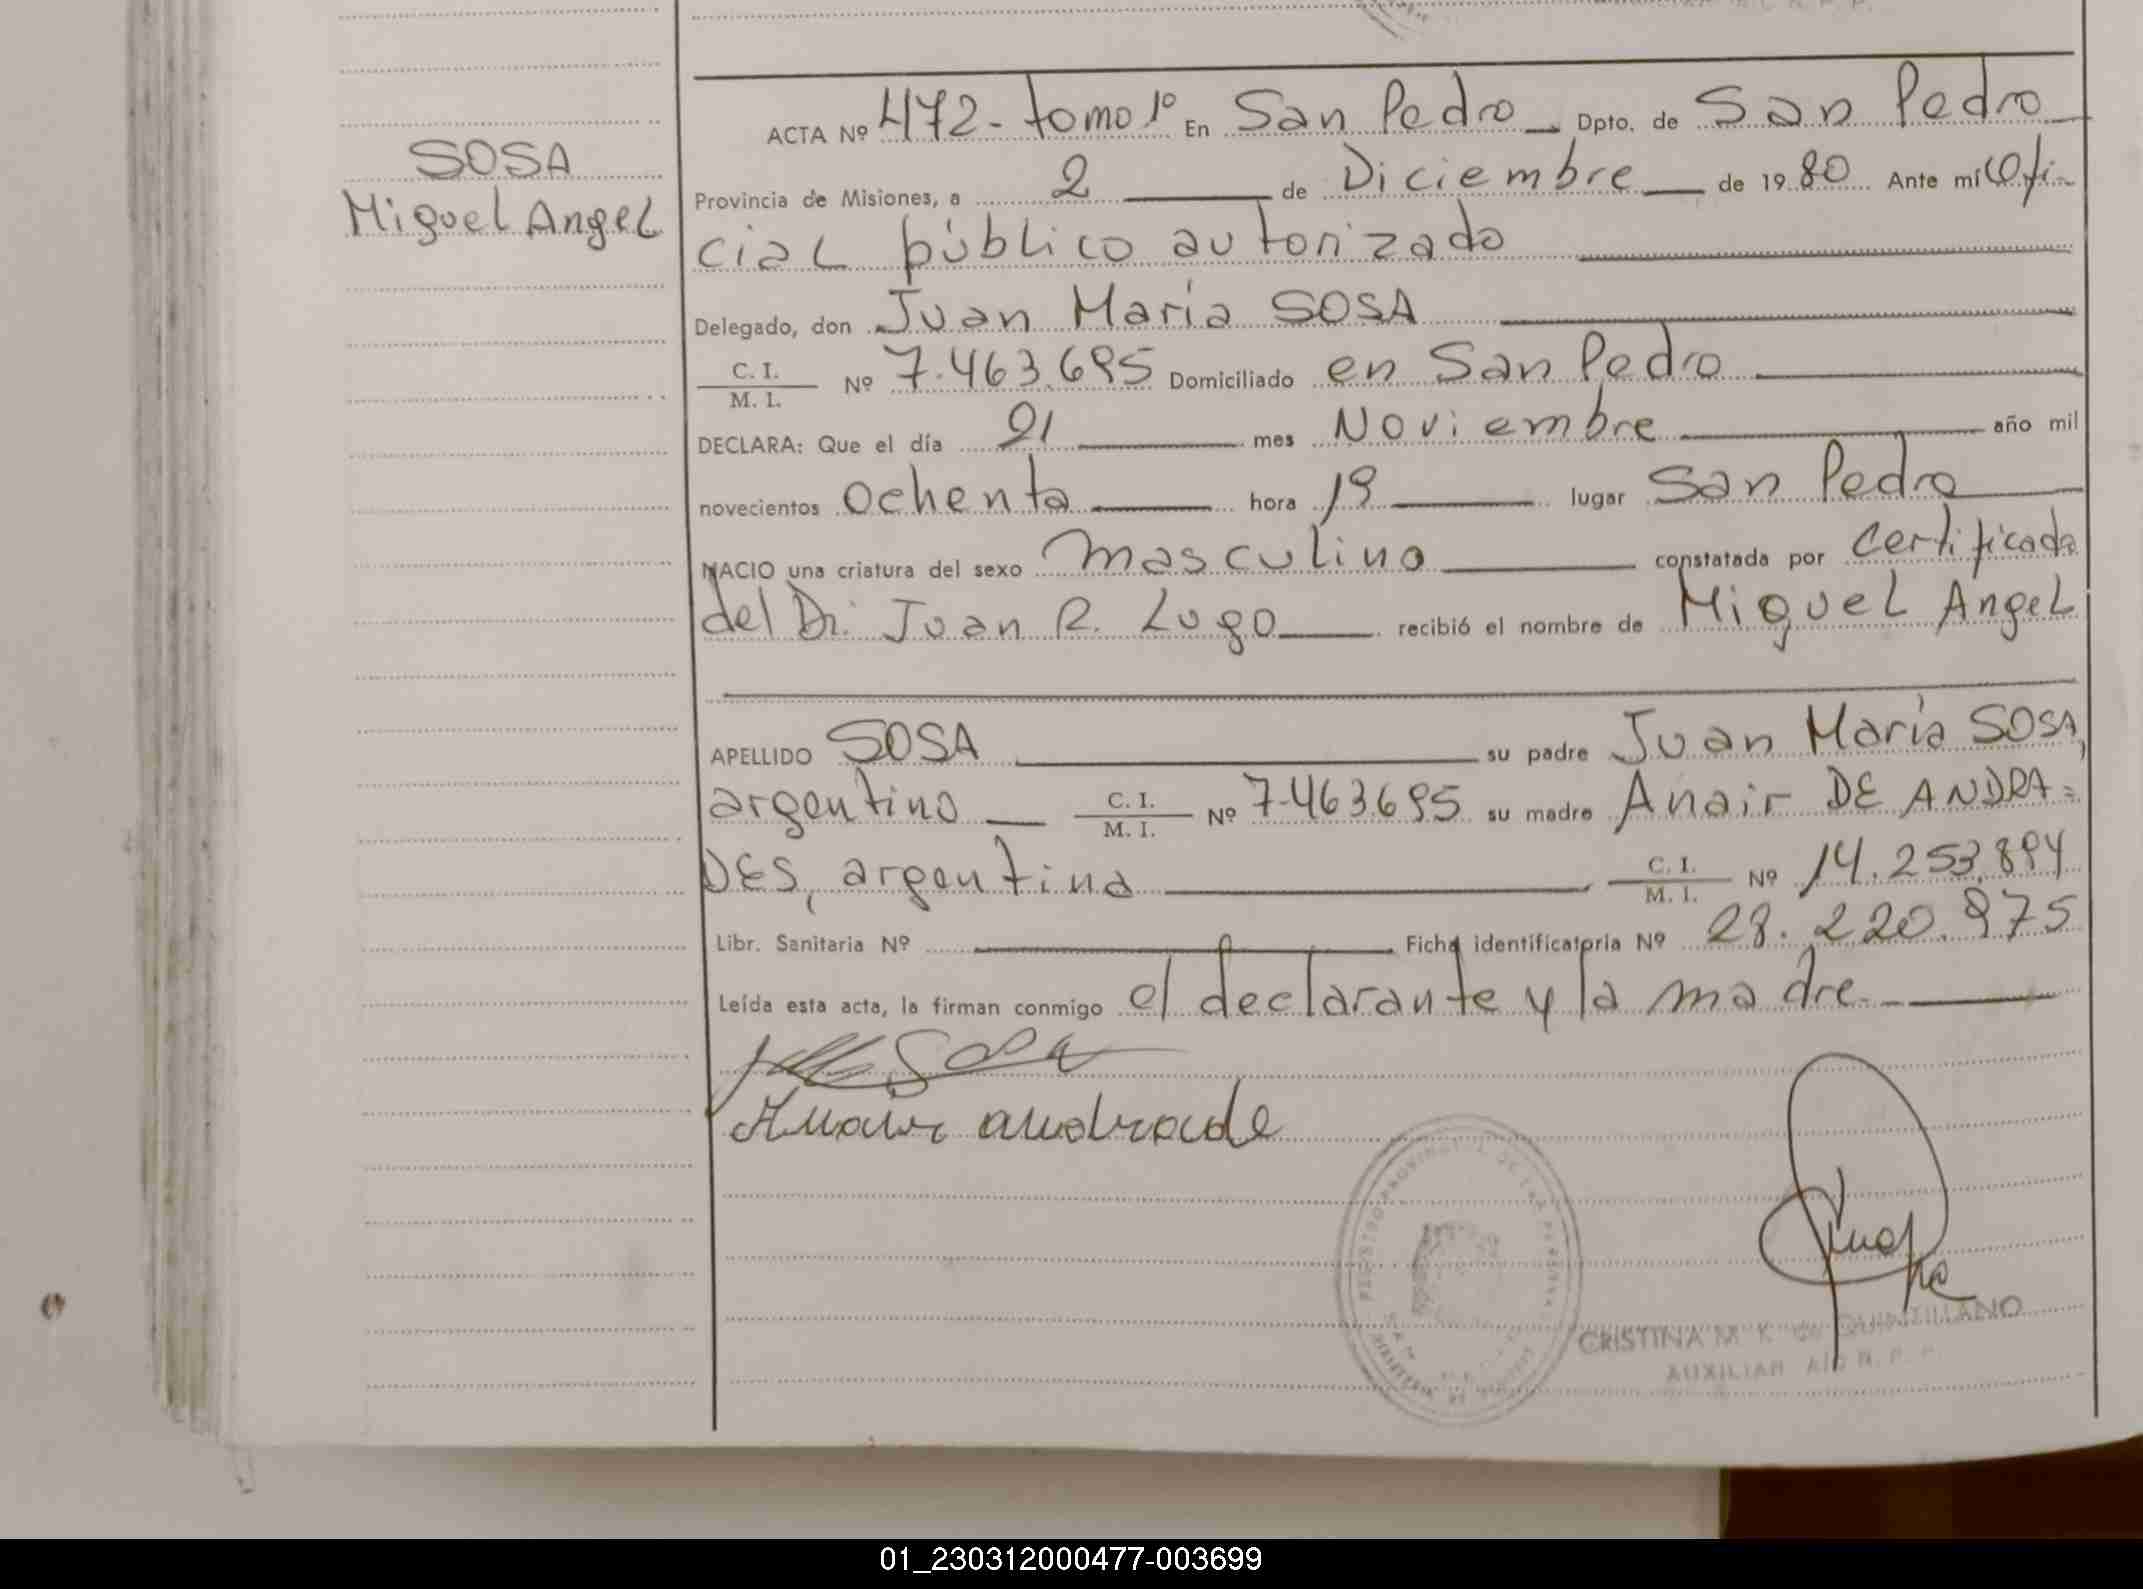 SOSA
Miguel Angel
ACTA Nº 472- tomo 1º En San Pedro Dpto. de San Pedro
Provincia de Misiones, a 2 de Diciembre de 1980 Ante mí Ofi-
cial público autorizado
Delegado, don Juan María SOSA
C. I.
M. I. Nº 7.463.695 Domiciliado en San Pedro
DECLARA: Que el día 21 mes Noviembre año mil
novecientos ochenta hora 19 lugar San Pedro
NACIO una criatura del sexo masculino constatada por certificado
del Dr. Juan R. Lugo recibió el nombre de Miguel Angel
APELLIDO SOSA su padre Juan María SOSA,
argentino C. I. M. I. Nº 7.463.695 su madre Anair DE ANDRA=
DES, argentina C. I. M. I. Nº 14.253.894
Libr. Sanitaria Nº Ficha identificatoria Nº 28.220.975
Leída esta acta, la firman conmigo el declarante y la madre.
Sosa
Anair andrade
REGISTRO PROVINCIAL DE LAS PERSONAS
CRISTINA M K de QUINTILLANO
AUXILIAR
01_230312000477-003699